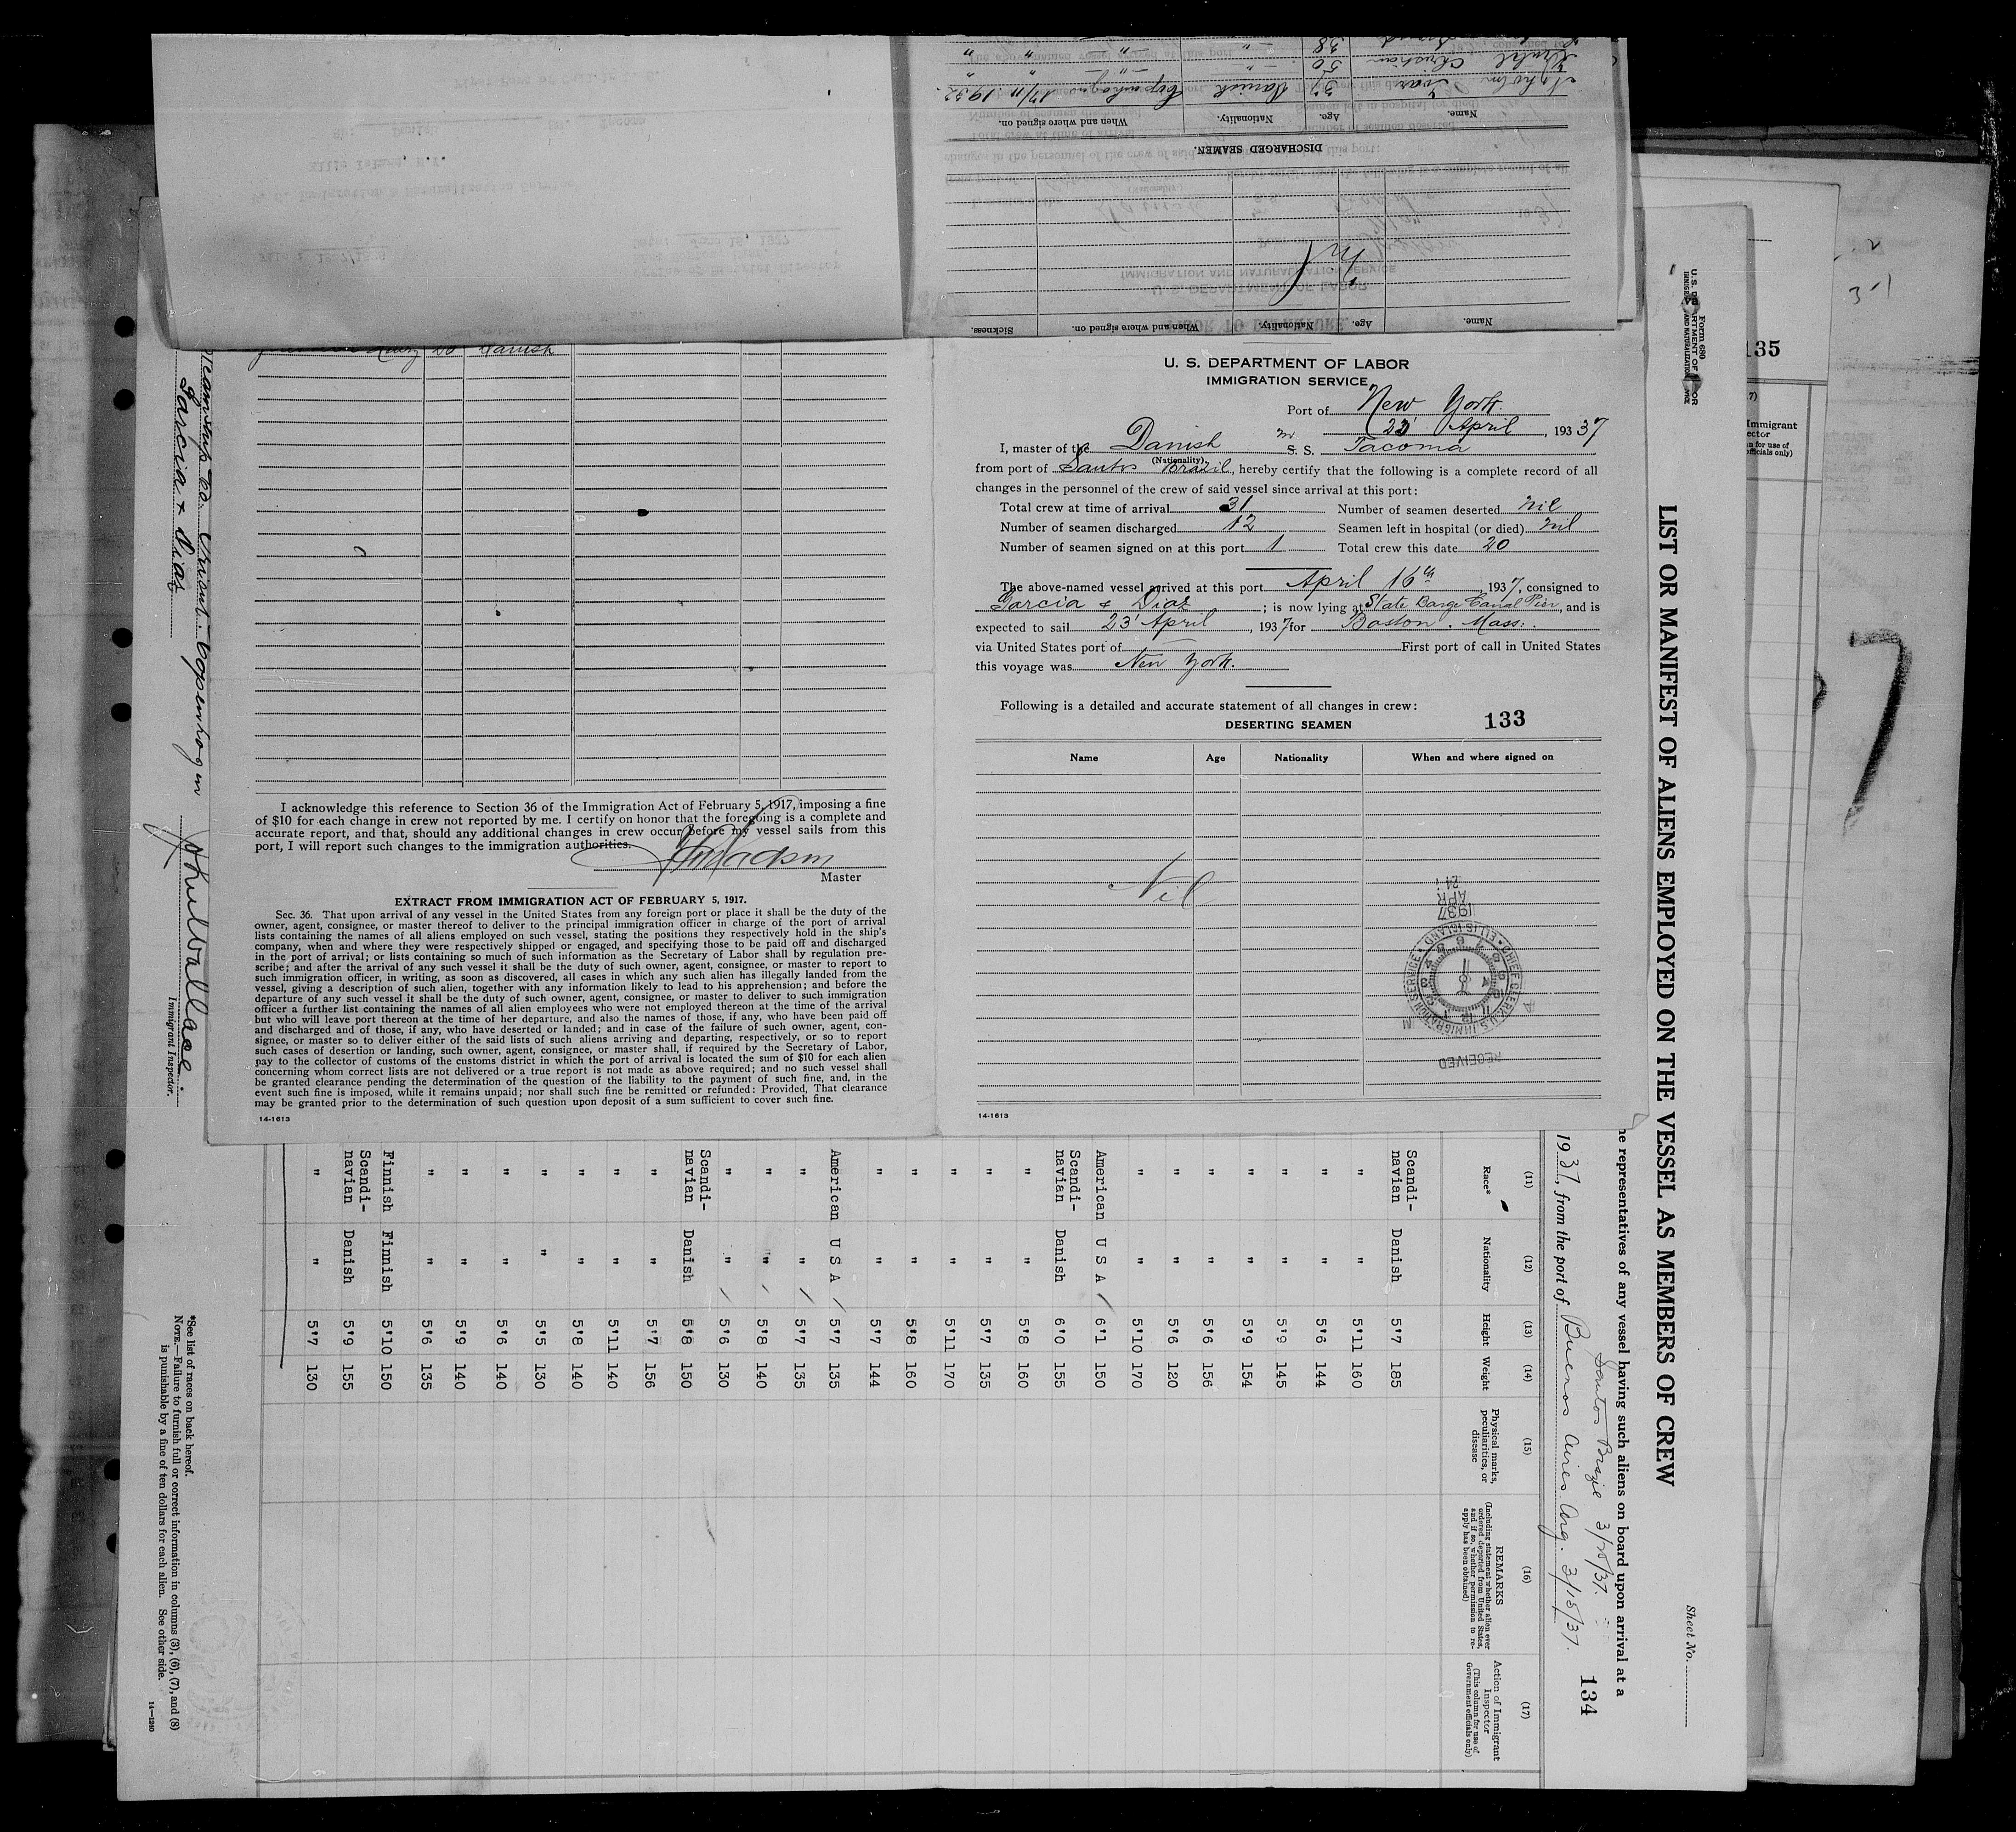 Name.
Age.
Nationality.
When and where signed on.
Sickness.
DISCHARGED SEAMEN.
Name.
Age.
Nationality.
When and where signed on.
Ivar 37 Danish Copenhagen 17/11 1932.
Christian 50 " " "
38 " " "
Danish
I acknowledge this reference to Section 36 of the Immigration Act of February 5, 1917, imposing a fine
of $10 for each change in crew not reported by me. I certify on honor that the foregoing is a complete and
accurate report, and that, should any additional changes in crew occur before my vessel sails from this
port, I will report such changes to the immigration authorities.
Master
EXTRACT FROM IMMIGRATION ACT OF FEBRUARY 5, 1917.
Sec. 36. That upon arrival of any vessel in the United States from any foreign port or place it shall be the duty of the
owner, agent, consignee, or master thereof to deliver to the principal immigration officer in charge of the port of arrival
lists containing the names of all aliens employed on such vessel, stating the positions they respectively hold in the ship's
company, when and where they were respectively shipped or engaged, and specifying those to be paid off and discharged
in the port of arrival; or lists containing so much of such information as the Secretary of Labor shall by regulation pre-
scribe; and after the arrival of any such vessel it shall be the duty of such owner, agent, consignee, or master to report to
such immigration officer, in writing, as soon as discovered, all cases in which any such alien has illegally landed from the
vessel, giving a description of such alien, together with any information likely to lead to his apprehension; and before the
departure of any such vessel it shall be the duty of such owner, agent, consignee, or master to deliver to such immigration
officer a further list containing the names of all alien employees who were not employed thereon at the time of the arrival
but who will leave port thereon at the time of her departure, and also the names of those, if any, who have been paid off
and discharged and of those, if any, who have deserted or landed; and in case of the failure of such owner, agent, con-
signee, or master so to deliver either of the said lists of such aliens arriving and departing, respectively, or so to report
such cases of desertion or landing, such owner, agent, consignee, or master shall, if required by the Secretary of Labor,
pay to the collector of customs of the customs district in which the port of arrival is located the sum of $10 for each alien
concerning whom correct lists are not delivered or a true report is not made as above required; and no such vessel shall
be granted clearance pending the determination of the question of the liability to the payment of such fine, and, in the
event such fine is imposed, while it remains unpaid; nor shall such fine be remitted or refunded: Provided, That clearance
may be granted prior to the determination of such question upon deposit of a sum sufficient to cover such fine.
14-1613
U. S. DEPARTMENT OF LABOR
IMMIGRATION SERVICE
Port of New York.
22' April, 1937
I, master of the Danish S. S. Tacoma
(Nationality)
from port of Santos Brazil, hereby certify that the following is a complete record of all
changes in the personnel of the crew of said vessel since arrival at this port:
Total crew at time of arrival 31 Number of seamen deserted nil
Number of seamen discharged 12 Seamen left in hospital (or died) nil
Number of seamen signed on at this port 1 Total crew this date 20
The above-named vessel arrived at this port April 16th, 1937, consigned to
Garcia & Diaz; is now lying at State Barge Canal Pier, and is
expected to sail 23' April, 1937 for Boston. Mass.
via United States port of — First port of call in United States
this voyage was New York.
Following is a detailed and accurate statement of all changes in crew:
DESERTING SEAMEN 133
Name Age Nationality When and where signed on
Nil
1937
APR
21
CHIEF CLERK U.S. IMMIGRATION SERVICE ELLIS ISLAND
RECEIVED
14-1613
Form 680
LIST OR MANIFEST OF ALIENS EMPLOYED ON THE VESSEL AS MEMBERS OF CREW
Sheet No.
representatives of any vessel having such aliens on board upon arrival at a
Santos Brazil
1937, from the port of Buenos Aires. Arg. 3/18/37.
134
(11) (12) (13) (14) (15) (16) (17)
Race* Nationality Height Weight Physical marks, peculiarities, or disease
REMARKS
(Including statement whether alien ever ordered deported from United States, and if so, whether permission to re-apply has been obtained)
Action of Immigrant Inspector
(This column for use of Government officials only)
Scandi-
navian Danish 5'7 185
" " 5'11 160
" " 5'6 144
" " 5'9 145
" " 5'9 154
" " 5'6 156
" " 5'6 120
" " 5'10 170
American U S A 6'1 150
Scandi-
navian Danish 6'0 155
" " 5'8 160
" " 5'7 135
" " 5'11 170
" " 5'8 160
" " 5'7 144
American U S A 5'7 135
" " 5'7 135
" " 5'8 140
" " 5'6 130
Scandi-
navian Danish 5'8 150
" " 5'7 156
" " 5'11 140
" " 5'8 140
" " 5'5 130
" " 5'6 140
" " 5'9 140
" " 5'6 135
Finnish Finnish 5'10 150
Scandi-
navian Danish 5'9 155
" " 5'7 130
Steamship Co. Orient. Copenhagen
Garcia & Diaz
John Wallace
Immigrant Inspector.
*See list of races on back hereof.
NOTE.—Failure to furnish full or correct information in columns (3), (6), (7), and (8)
is punishable by a fine of ten dollars for each alien. See other side.
14—1240
135
7)
Immigrant
ector
n for use of
officials only)
3-1
7